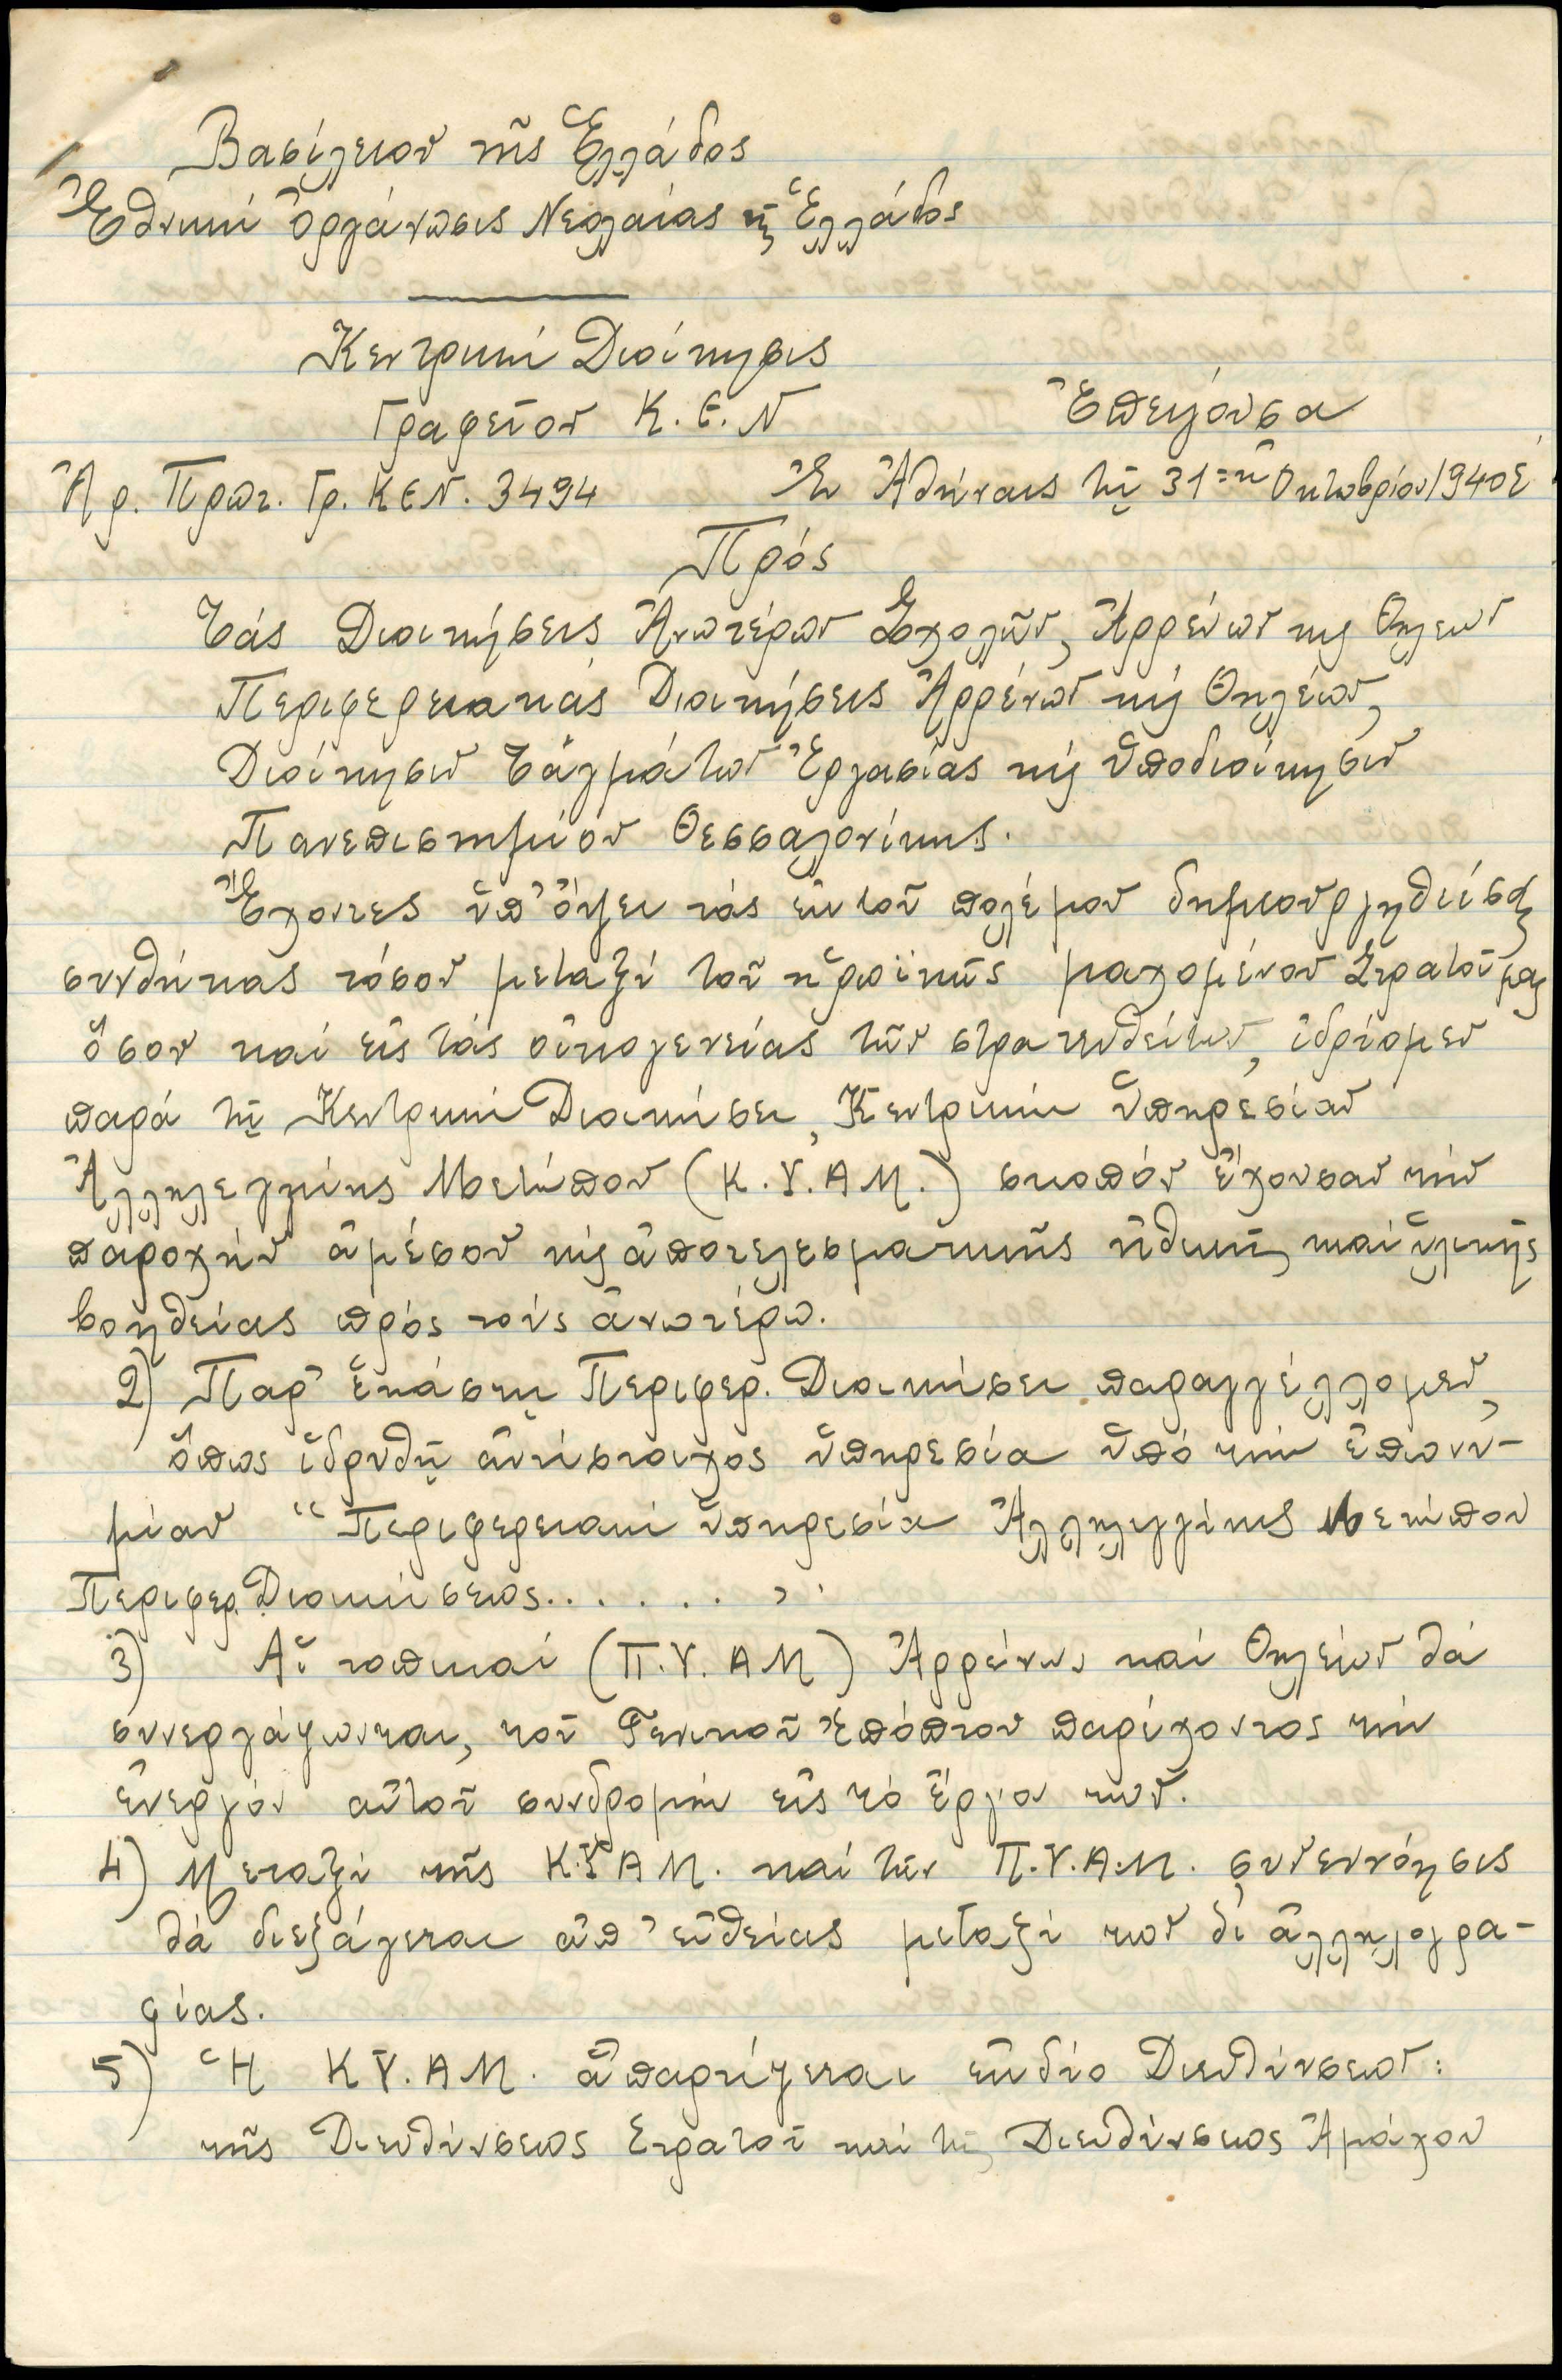 Βασίλειον τῆς Ἑλλάδος
Ἐθνική Ὀργάνωσις Νεολαίας τῆς Ἑλλάδος
Κεντρική Διοίκησις
Γραφεῖον Κ.Ε.Ν
Ἐπείγουσα
Ἀρ. Πρωτ. Γρ. ΚΕΝ. 3494
Ἐν Ἀθήναις τῇ 31=ῃ Ὀκτωβρίου 1940
Πρός
Τάς Διοικήσεις Ἀνωτέρων Σχολῶν, Ἀρρένων κ̓ Θηλεων
Περιφερειακάς Διοικήσεις Ἀρρένων κ̓ Θηλέων,
Διοίκησιν Ταγμάτων Ἐργασίας κ̓ ὑποδιοίκησιν
Πανεπιστημίου Θεσσαλονίκης.
Ἔχοντες ὑπ' ὄψει τάς ἐκ τοῦ πολέμου δημιουργηθείσας
συνθήκας τόσον μεταξύ τοῦ ἡρωϊκῶς μαχομένου Στρατοῦ μας
ὅσον καί εἰς τάς οἰκογενείας τῶν στρατευθέντων, ἱδρύομεν
παρά τῇ Κεντρικῇ Διοικήσει, Κεντρικήν ὑπηρεσίαν
Ἀλληλεγγύης Μετώπου (Κ.Υ.ΑΜ.) σκοπόν ἔχουσαν τήν
παροχήν ἀμέσου κ̓ ἀποτελεσματικῆς ἠθικῆς καί ὑλικῆς
βοηθείας πρός τούς ἀνωτέρω.
2) Παρ' ἑκάστῃ Περιφερ. Διοικήσει παραγγέλλομεν,
ὅπως ἱδρυθῇ ἀντίστοιχος ὑπηρεσία ὑπό τήν ἐπωνυ-
μίαν "Περιφερειακή ὑπηρεσία Ἀλληλεγγύης Μετώπου
Περιφερ. Διοικήσεως......"
3) Αἱ τοπικαί (Π.Υ.ΑΜ) Ἀρρένων καί Θηλέων θά
συνεργάζωνται, τοῦ Γενικοῦ Ἐπόπτου παρέχοντος τήν
ἐνεργόν αὐτοῦ συνδρομήν εἰς τό ἔργον των.
4) Μεταξύ τῆς Κ.Υ.ΑΜ. καί τῶν Π.Υ.Α.Μ. συνεννόησις
θά διεξάγεται ἀπ' εὐθείας μεταξύ των δι' ἀλληλογρα-
φίας.
5) Ἡ ΚΥ.ΑΜ. ἀπαρτίζεται ἐκ δύο Διευθύνσεων:
τῆς Διευθύνσεως Στρατοῦ καί τῆς Διευθύνσεως Ἀμάχου